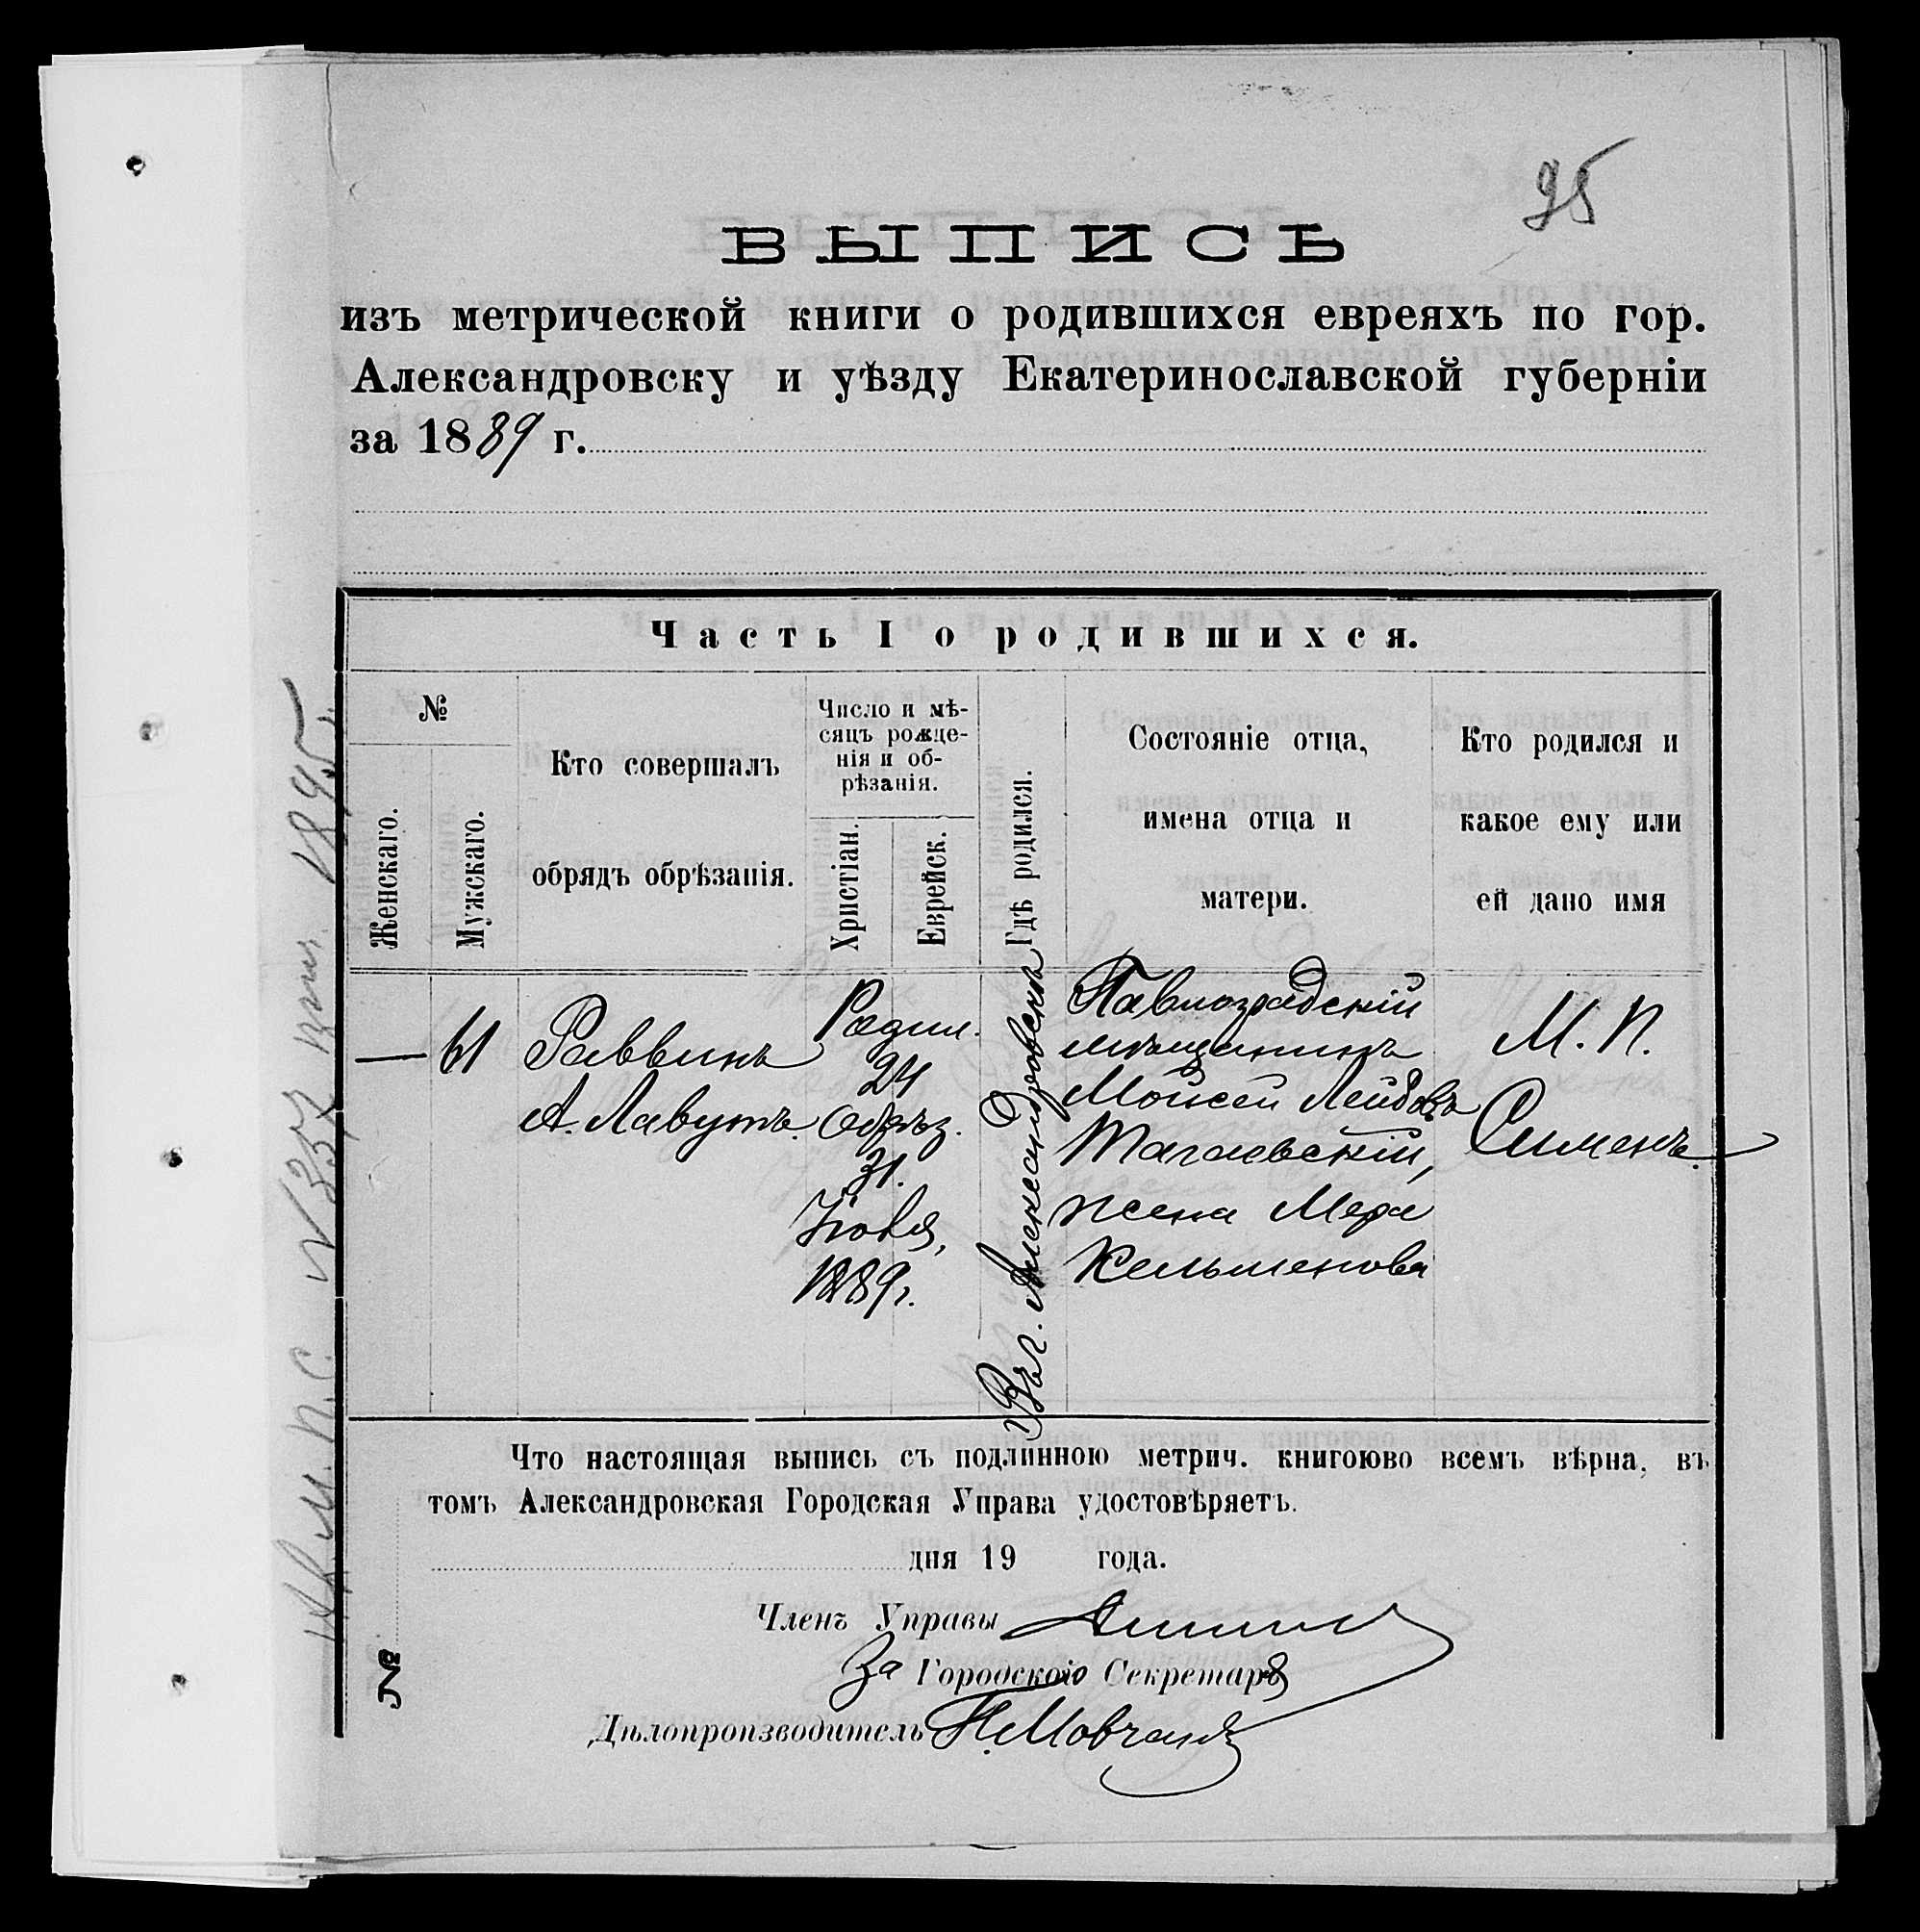 95
ВЫПИСЬ
изъ метрической книги о родившихся евреяхъ по гор.
Александровску и уѣзду Екатеринославской губерніи
за 1889 г.
Часть I о родившихся.
№
Женскаго.
Мужскаго.
Кто совершалъ
обрядъ обрѣзанія.
Число и мѣ-
сяцъ рожде-
нія и об-
рѣзанія.
Христіан.
Еврейск.
Гдѣ родился.
Состояніе отца,
имена отца и
матери.
Кто родился и
какое ему или
ей дано имя
—
61
Раввинъ
А. Лавутъ.
Родил.
24
Обрѣз.
31.
1889г.
Въ г. Александровскѣ
Павлоградскій
мѣщанинъ
Мойсей Лейбовъ
Тагаевскій,
жена Мера
Кельменова
М. П.
Сименъ.
Что настоящая выпись съ подлинною метрич. книгоюво всемъ вѣрна, въ
томъ Александровская Городская Управа удостовѣряетъ.
дня 19 года.
Членъ Управы
За Городского Секретаря
Дѣлопроизводитель Н. Мовчанъ
№